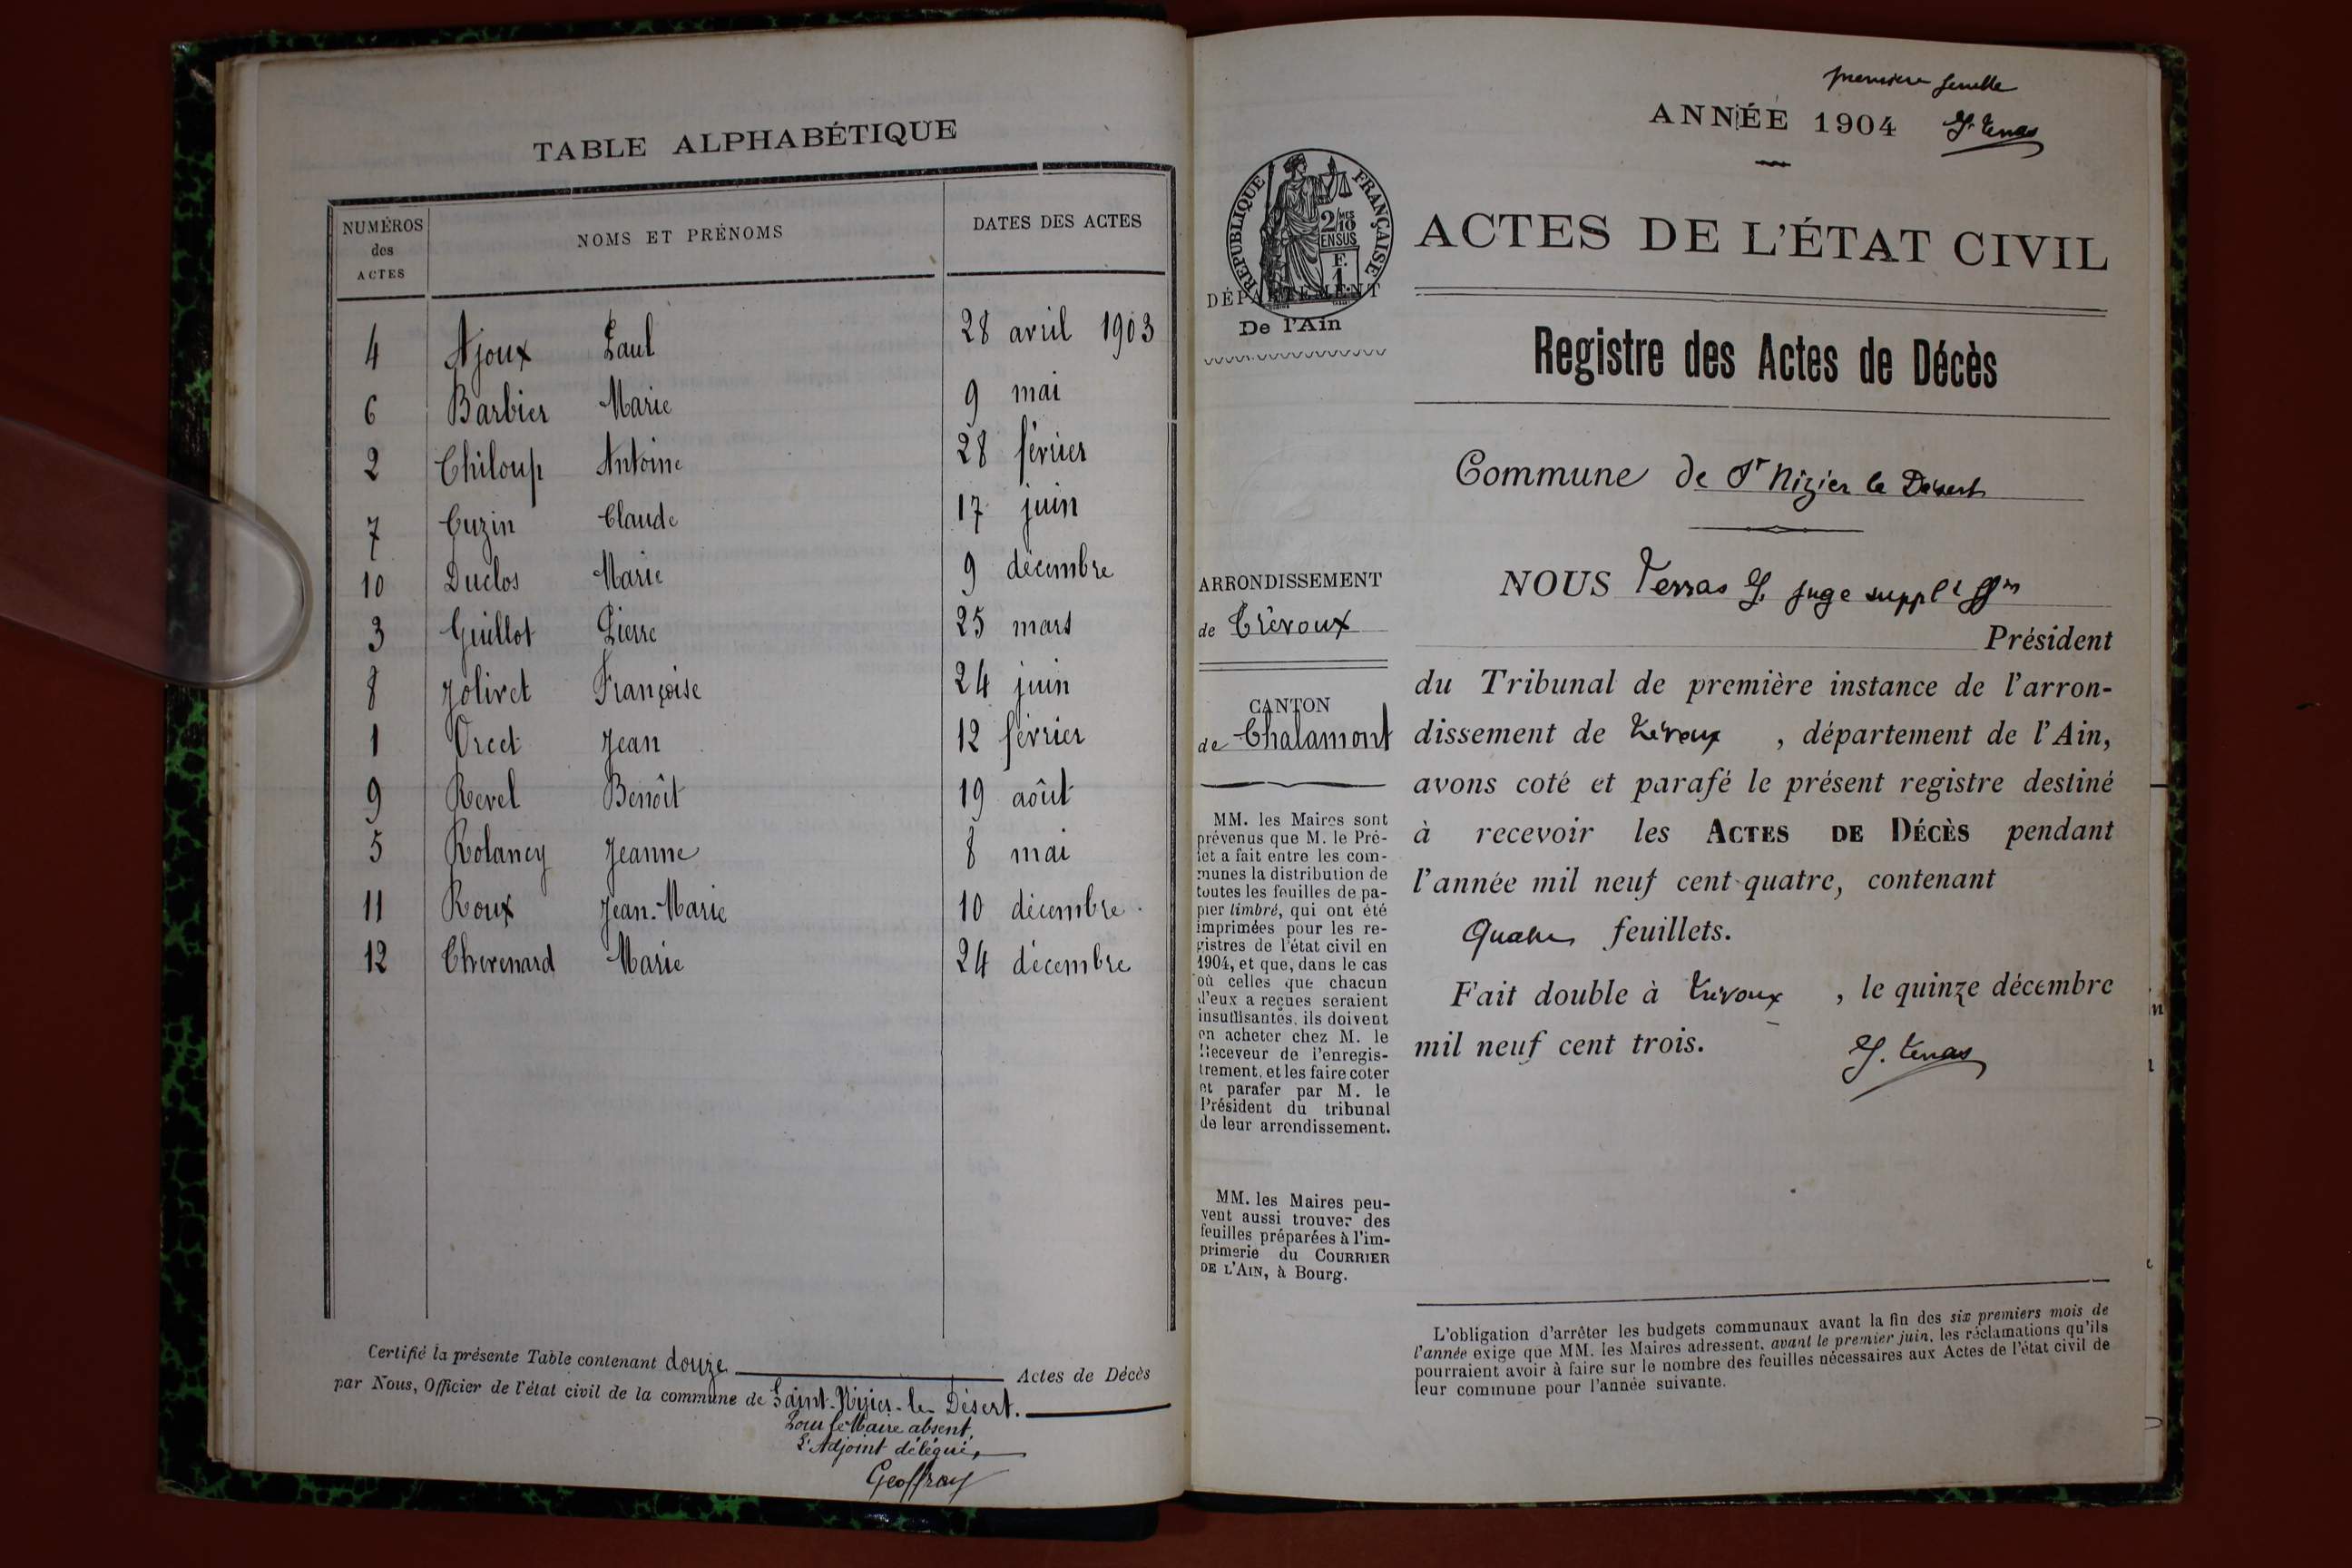 TABLE ALPHABÉTIQUE
NUMÉROS des ACTES NOMS ET PRÉNOMS DATES DES ACTES
4 Ajoux Paul 28 avril 1903
6 Barbier Marie 9 mai
2 Chiloup Antoine 28 février
7 Cuzin Claude 17 juin
10 Duclos Marie 9 décembre
3 Guillot Pierre 25 mars
8 Jolivet Françoise 24 juin
1 Orcet Jean 12 février
9 Revel Benoît 19 août
5 Rolancy Jeanne 8 mai
11 Roux Jean-Marie 10 décembre
12 Thevenard Marie 24 décembre
Certifié la présente Table contenant douze Actes de Décès
par Nous, Officier de l'état civil de la commune de Saint-Nizier-le-Désert.
Pour le Maire absent,
L'Adjoint délégué,
Geoffray
première feuille
ANNÉE 1904
RÉPUBLIQUE FRANÇAISE
2/10 MES
EN SUS
F.
1
DÉPARTEMENT
De l'Ain
ARRONDISSEMENT
de Trévoux
CANTON
de Chalamont
MM. les Maires sont
prévenus que M. le Pré-
fet a fait entre les com-
munes la distribution de
toutes les feuilles de pa-
pier timbré, qui ont été
imprimées pour les re-
gistres de l'état civil en
1904, et que, dans le cas
où celles que chacun
d'eux a reçues seraient
insuffisantes, ils doivent
en acheter chez M. le
Receveur de l'enregis-
trement, et les faire coter
et parafer par M. le
Président du tribunal
de leur arrondissement.
MM. les Maires peu-
vent aussi trouver des
feuilles préparées à l'im-
primerie du COURRIER
DE L'AIN, à Bourg.
ACTES DE L'ÉTAT CIVIL
Registre des Actes de Décès
Commune de St Nizier le Désert
NOUS Terras J. juge suppl
Président
du Tribunal de première instance de l'arron-
dissement de Trévoux, département de l'Ain,
avons coté et parafé le présent registre destiné
à recevoir les ACTES DE DÉCÈS pendant
l'année mil neuf cent quatre, contenant
Quatre feuillets.
Fait double à Trévoux, le quinze décembre
mil neuf cent trois.
J. Terras
L'obligation d'arrêter les budgets communaux avant la fin des six premiers mois de
l'année exige que MM. les Maires adressent, avant le premier juin, les réclamations qu'ils
pourraient avoir à faire sur le nombre des feuilles nécessaires aux Actes de l'état civil de
leur commune pour l'année suivante.